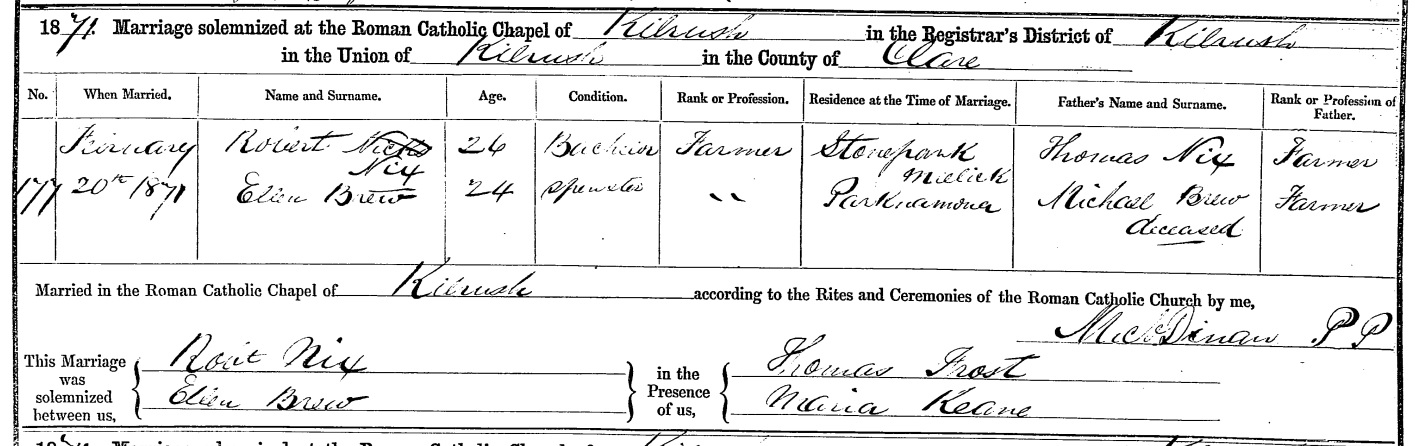 1871. Marriage solemnized at the Roman Catholic Chapel of Kilrush in the Registrar's District of Kilrush
in the Union of Kilrush in the County of Clare
No. When Married. Name and Surname. Age. Condition. Rank or Profession. Residence at the Time of Marriage. Father's Name and Surname. Rank or Profession of Father.
February Robert Nicks 26 Bachelor Farmer Stonepark Thomas Nix Farmer
Nix Mellick
177 20th 1871 Ellen Brew 24 Spinster " Parknamoney Michael Brew Farmer
deceased
Married in the Roman Catholic Chapel of Kilrush according to the Rites and Ceremonies of the Roman Catholic Church by me,
Mich Dinan P P
This Marriage was solemnized between us, Robt Nix in the Presence of us, Thomas Frost
Ellen Brew Maria Keane